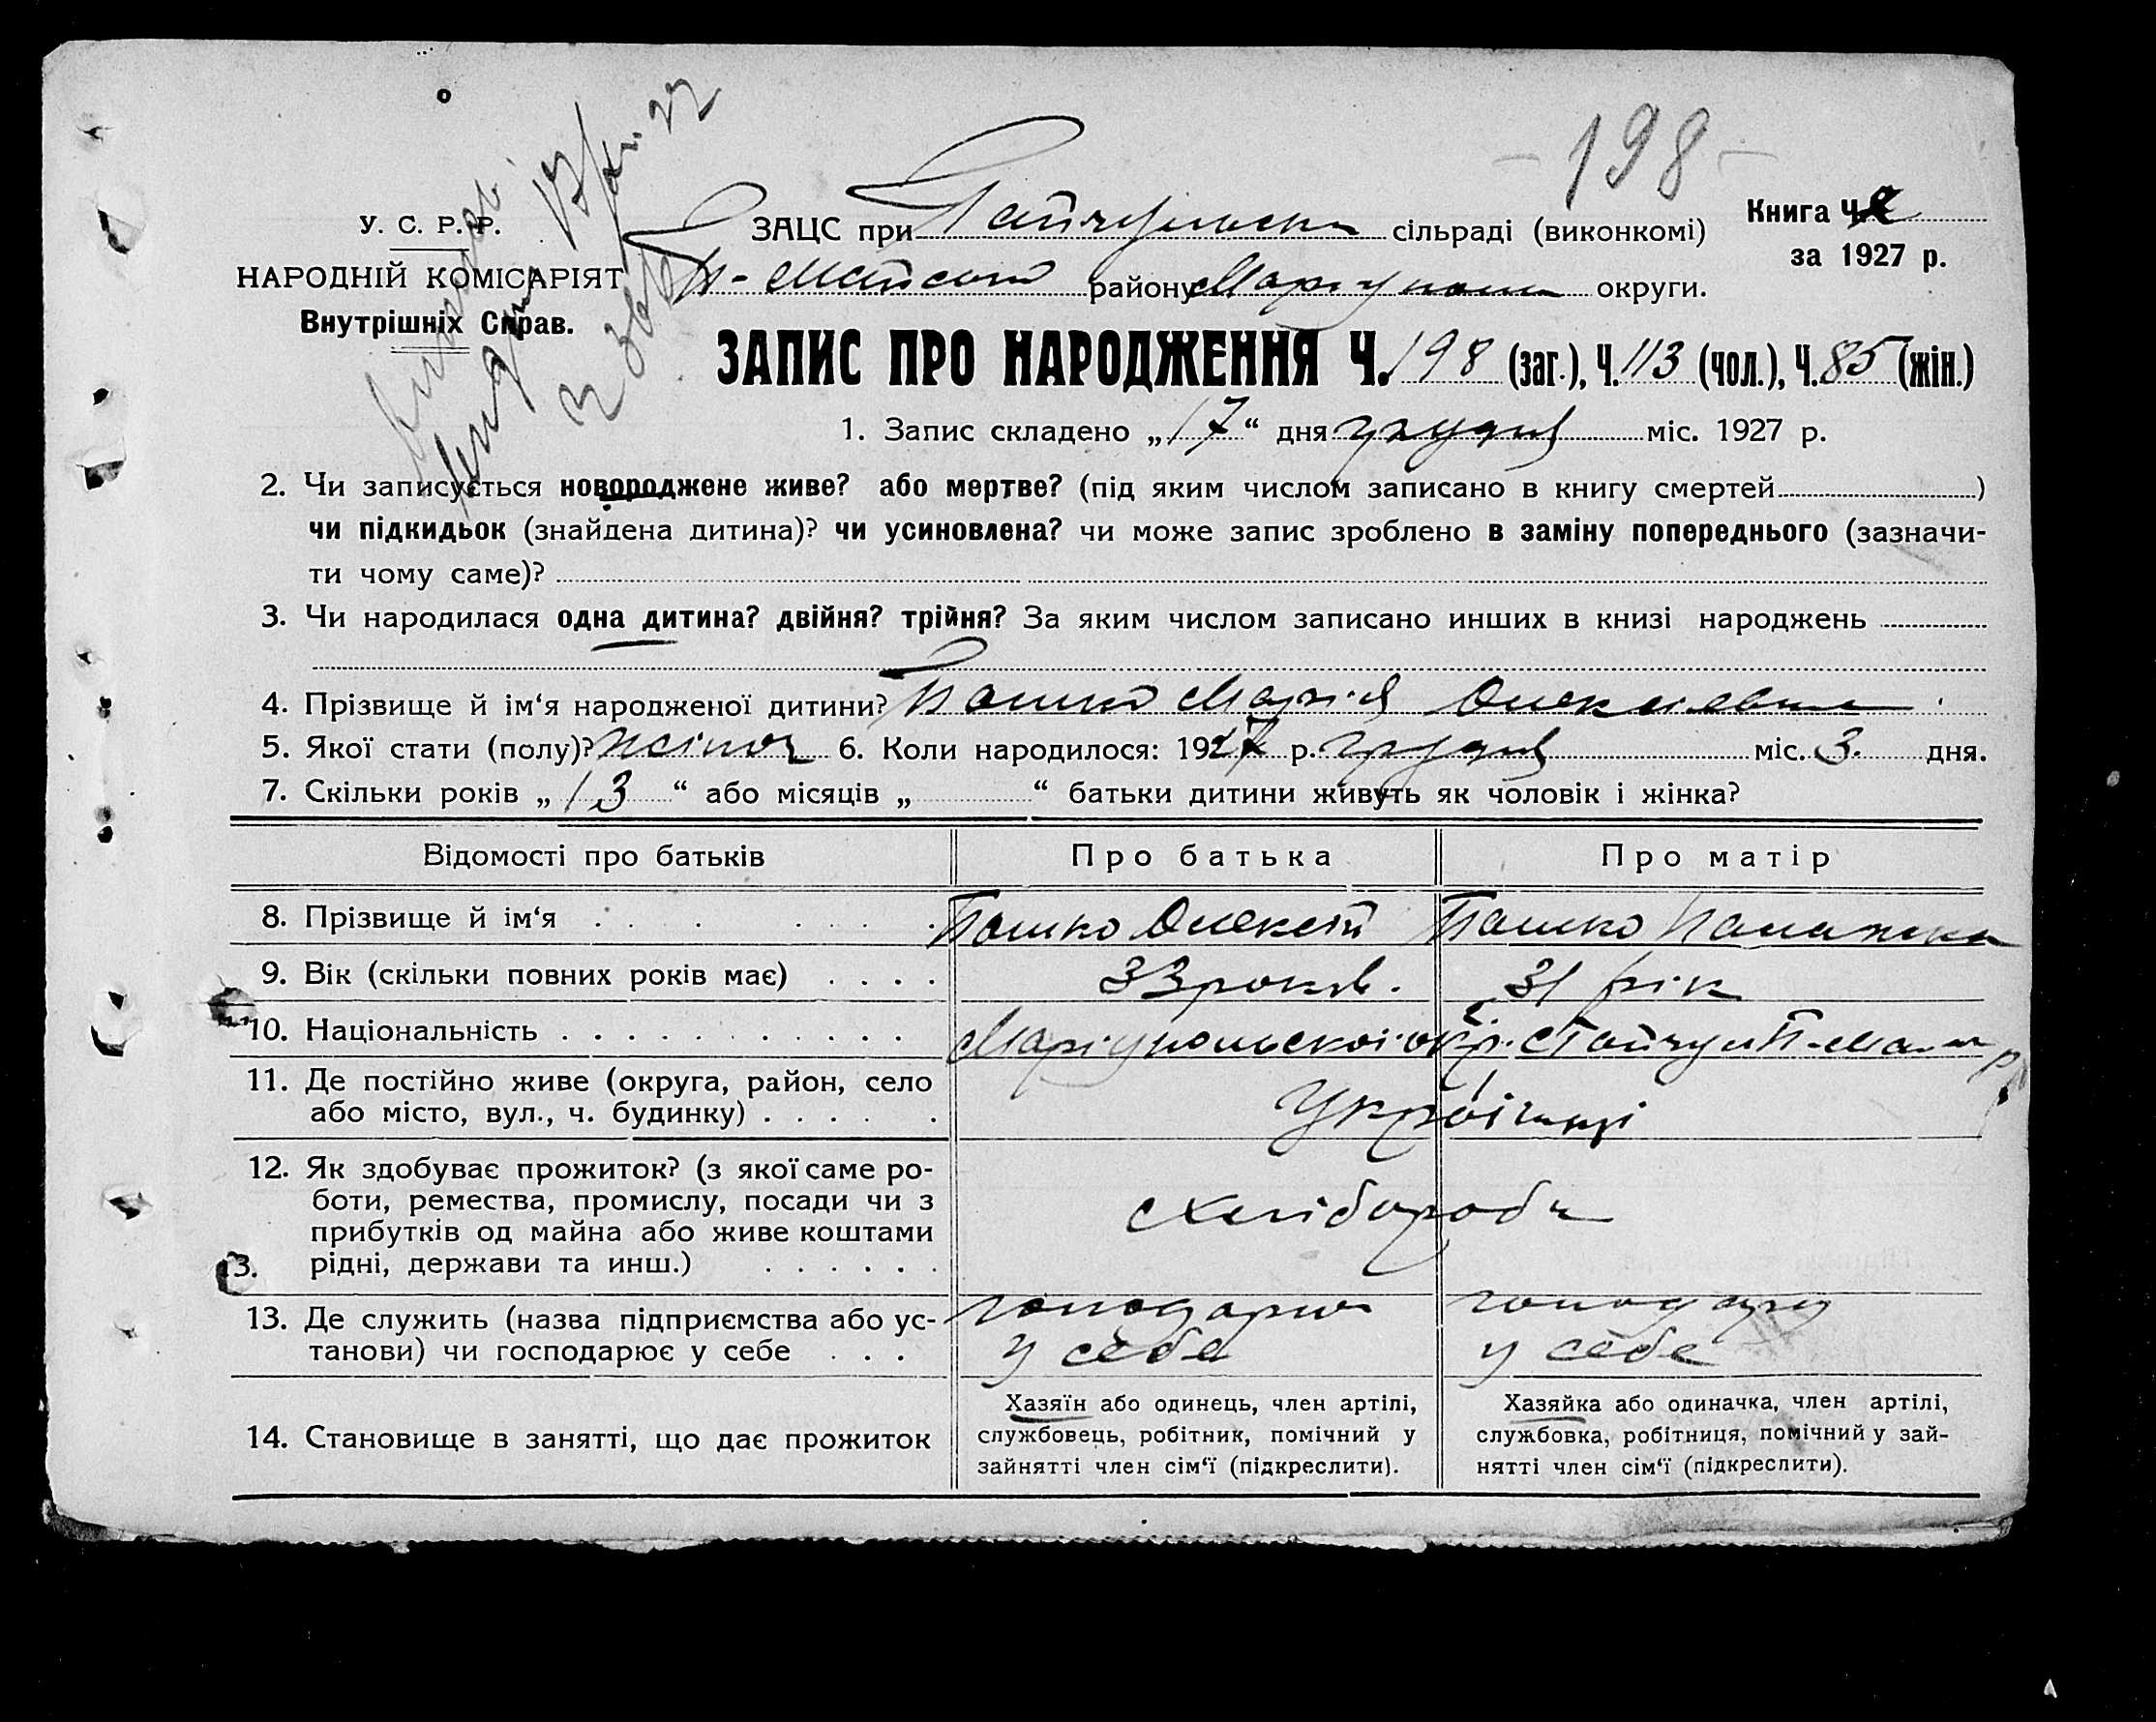 - 198 -
У. С. Р. Р.
НАРОДНІЙ КОМІСАРІЯТ
Внутрішніх Справ.
ЗАЦС при сільраді (виконкомі)
району округи.
Книга Ч.
за 1927 р.
ЗАПИС ПРО НАРОДЖЕННЯ Ч. 198 (заг.), Ч. 113 (чол.), Ч. 85 (жін.)
1. Запис складено „17“ дня грудня міс. 1927 р.
2. Чи записується новороджене живе? або мертве? (під яким числом записано в книгу смертей )
чи підкидьок (знайдена дитина)? чи усиновлена? чи може запис зроблено в заміну попереднього (зазначи-
ти чому саме)?
3. Чи народилася одна дитина? двійня? трійня? За яким числом записано инших в книзі народжень
4. Прізвище й ім‘я народженої дитини? Башко Марія Олексіевна
5. Якої стати (полу)? 6. Коли народилося: 1927 р. грудня міс. 3. дня.
7. Скільки років „13“ або місяців „ “ батьки дитини живуть як чоловік і жінка?
Відомості про батьків Про батька Про матір
8. Прізвище й ім‘я Башко Олексій Башко
9. Вік (скільки повних років має) 33 років. 31 рік
10. Національність Маріупольскоі окр.
11. Де постійно живе (округа, район, село
або місто, вул., ч. будинку) Украінці
12. Як здобуває прожиток? (з якої саме ро-
боти, ремества, промислу, посади чи з
прибутків од майна або живе коштами
рідні, держави та инш.) схліборобы
13.
13. Де служить (назва підприємства або ус-
танови) чи господарює у себе у себе у себе
14. Становище в занятті, що дає прожиток
Хазяїн або одинець, член артілі,
службовець, робітник, помічний у
зайнятті член сім‘ї (підкреслити).
Хазяйка або одиначка, член артілі,
службовка, робітниця, помічний у зай-
нятті член сім‘ї (підкреслити).